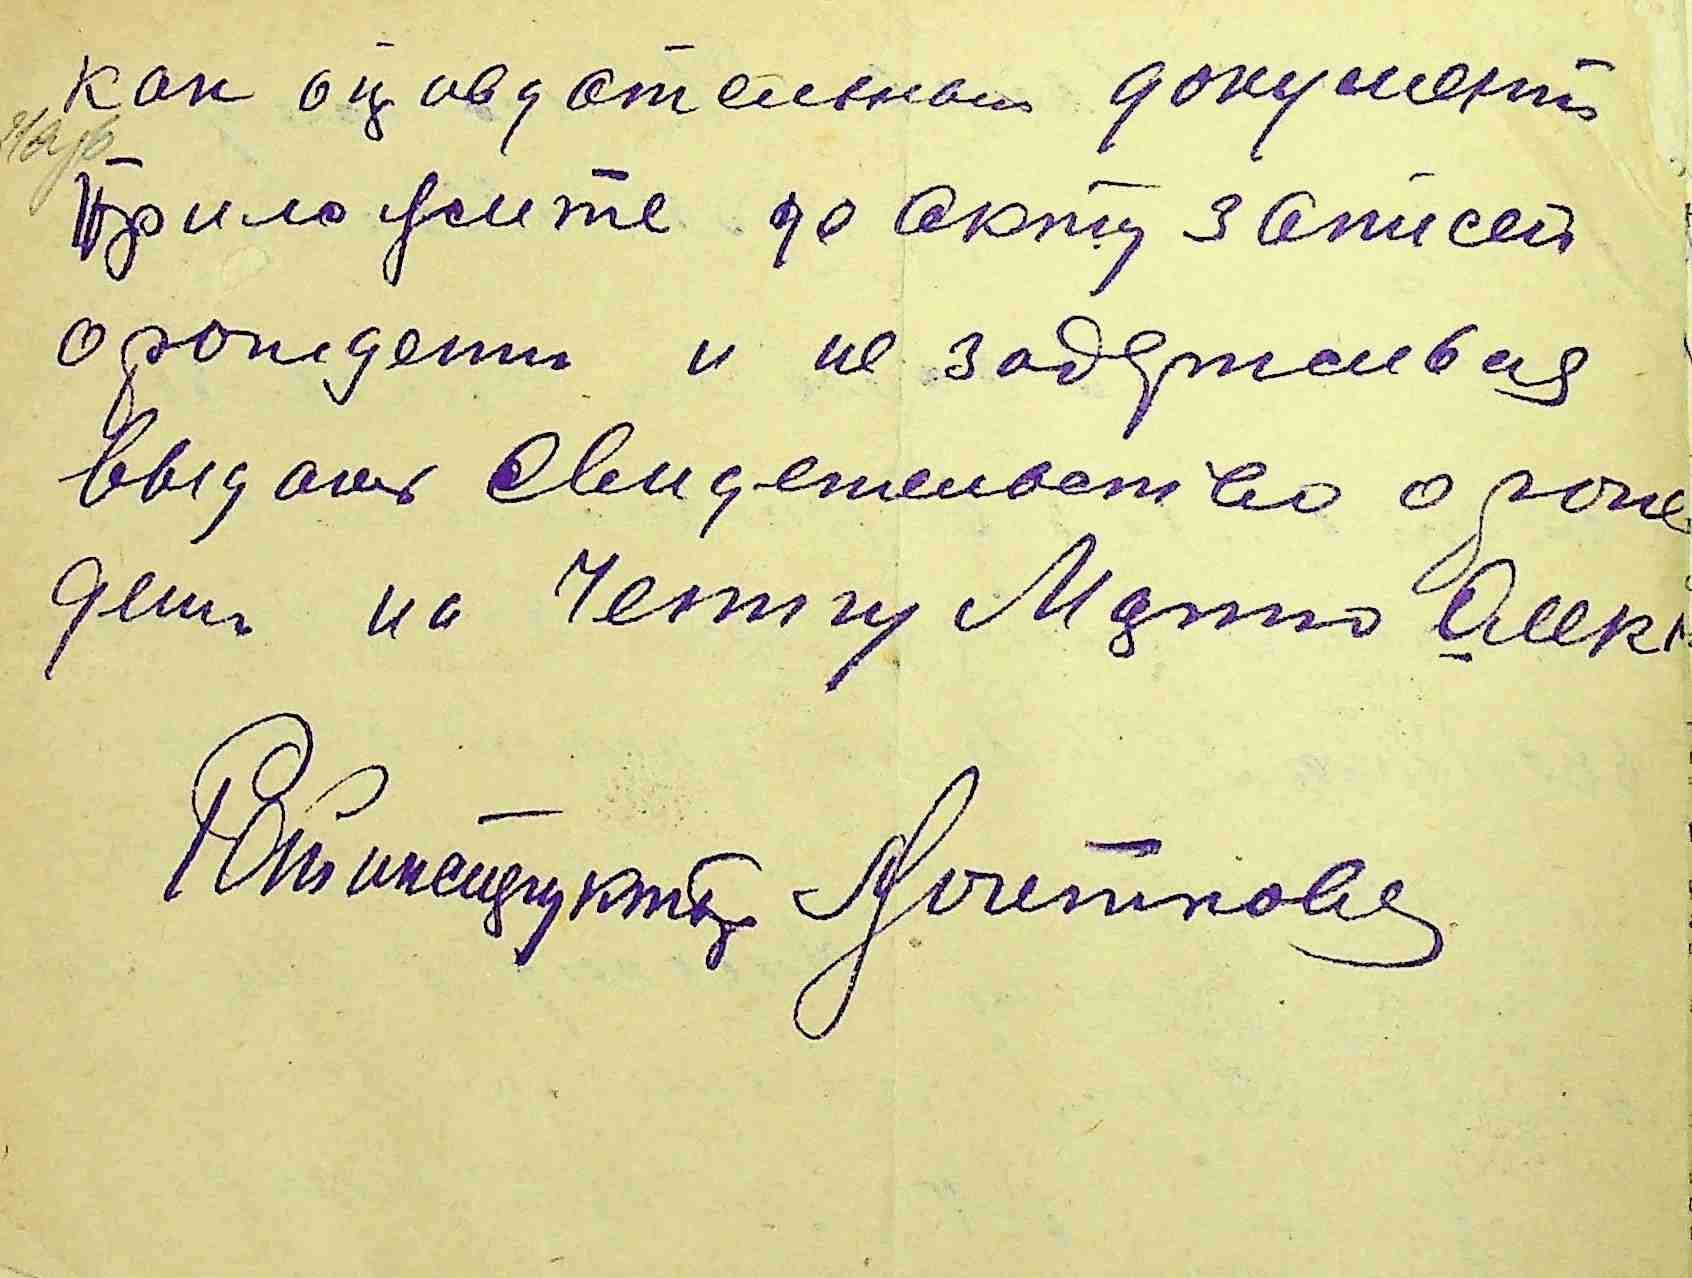 как оправдательный документ
приложите до акту записей
о рождении и не задерживая
выдать свидетельство о рож
дени на Ченчу Марию Алек
инструктор